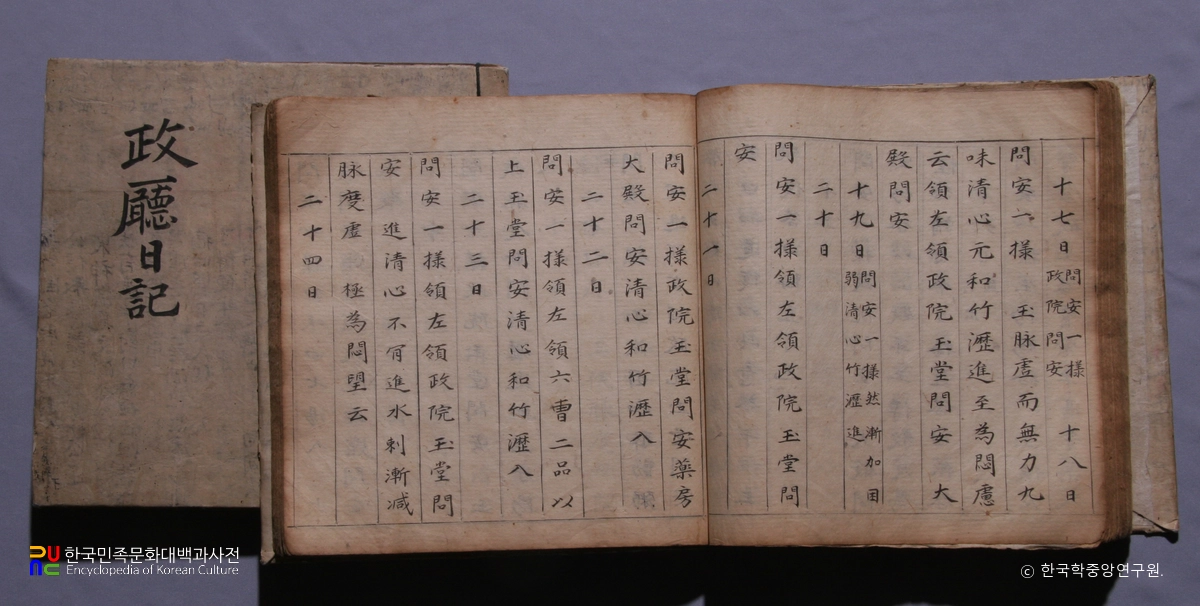 政廳日記
十七日 問安一樣 政院問安 十八日
問安一樣 玉脉虛而無力九
味清心元和竹瀝進至為悶慮
云領左領政院玉堂問安 大
殿問安
十九日 問安一樣然漸加困 弱清心竹瀝進
二十日
問安一樣領左領政院玉堂問
安
二十一日
問安一樣政院玉堂問安藥房
大殿問安清心和竹瀝入
二十二日
問安一樣領左領六曹二品以
上玉堂問安清心和竹瀝入
二十三日
問安一樣領左領政院玉堂問
安 進清心不肯進水剌漸减
脉度虛極為悶望云
二十四日
한국민족문화대백과사전
Encyclopedia of Korean Culture
ⓒ 한국학중앙연구원.